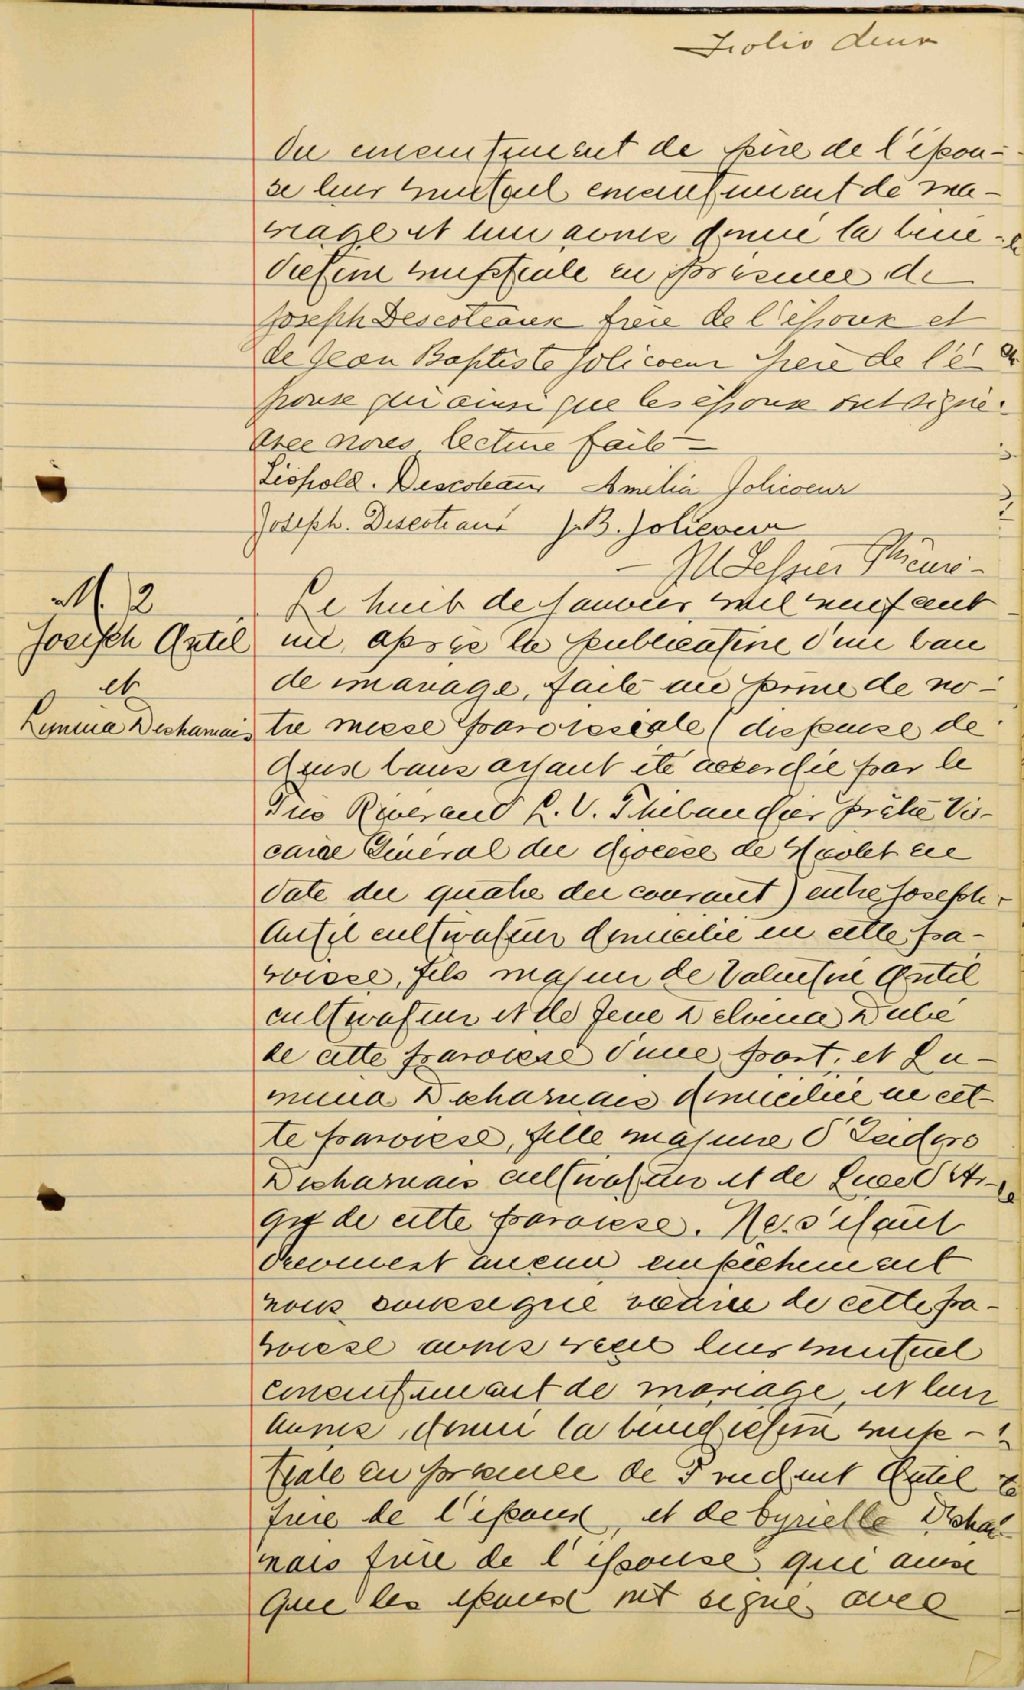 Folio deux
du consentement de père de l'épou-
se leur mutuel consentement de ma-
riage et leur avons donné la béné-
diction nuptiale en présence de
Joseph Descoteaux frère de l'époux et
de Jean Baptiste Jolicoeur père de l'é-
pouse qui ainsi que les époux ont signé
avec nous, lecture faite =
Léopold. Descoteaux Amélia Jolicoeur
Joseph. Descoteaux J.B. Jolicoeur
Tessier Ptre curé -
M. 2
Joseph Antil
et
Lumina Descharnais
Le huit de janvier mil neuf cent
un, après la publication d'un ban
de mariage, faite au prône de no-
tre messe paroissiale (dispense de
deux bans ayant été accordée par le
Très Révérend L. V. Thibaudier prêtre Vi-
caire Général du diocèse de Nicolet en
date du quatre du courant) entre Joseph
Antil cultivateur domicilié en cette pa-
roisse, fils majeur de Valentin Antil
cultivateur et de feue Delvina Dubé
de cette paroisse d'une part; et Lu-
mina Descharnais domiciliée en cet-
te paroisse, fille majeure d'Isidore
Descharnais cultivateur et de Luce d'Ar-
gy de cette paroisse. Ne s'étant
découvert aucun empêchement
nous soussigné vicaire de cette pa-
roisse avons reçu leur mutuel
consentement de mariage, et leur
avons donné la bénédiction nup-
tiale en présence de Prudent Antil
frère de l'époux, et de Cyrielle Deschar-
nais frère de l'épouse qui ainsi
que les époux ont signé avec